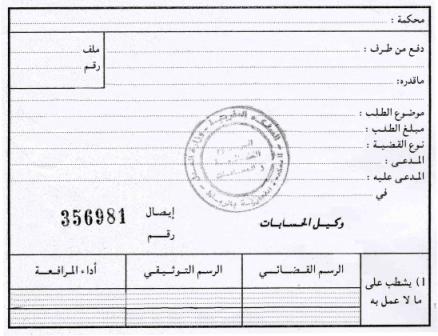 محكمة :
دفع من طرف :
ملف
رقم
ماقدره:
موضوع الطلب :
مبلغ الطلب :
نوع القضية :
المدعى :
المدعى عليه :
في
إيصال 356981
رقم
وكيل الحسابات
1) يشطب على ما لا عمل به
الرسم القضائي
الرسم التوثيقي
أداء المرافعة